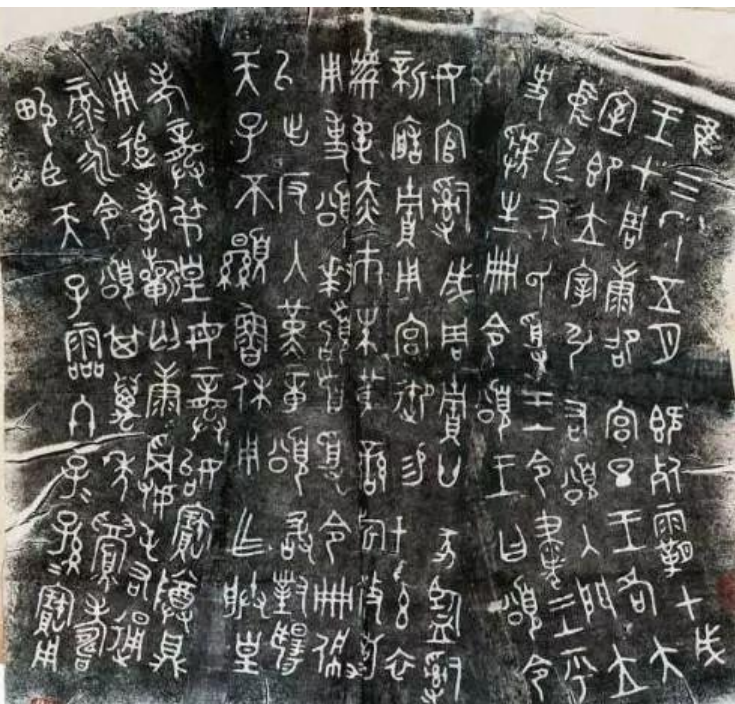 隹三年五月既死霸甲戌
王才周康卲宮旦王各大
室即立宰引右頌入門立中
廷尹氏受王令書王乎
史虢生冊令頌王曰頌令
女官𤔲成周貯廿家監𤔲
新造貯用宮御易女玄衣
黹屯赤巿朱黃䜌旂攸勒
用事頌拜𩒨首受令冊佩
以出反入堇章頌敢對揚
天子不顯魯休用乍朕皇
考龏弔皇母龏始寶尊鼎
用追孝𣄨匄康𠑇屯右通
彔永令頌其萬年眉壽
畯臣天子霝冬子=孫=寶用